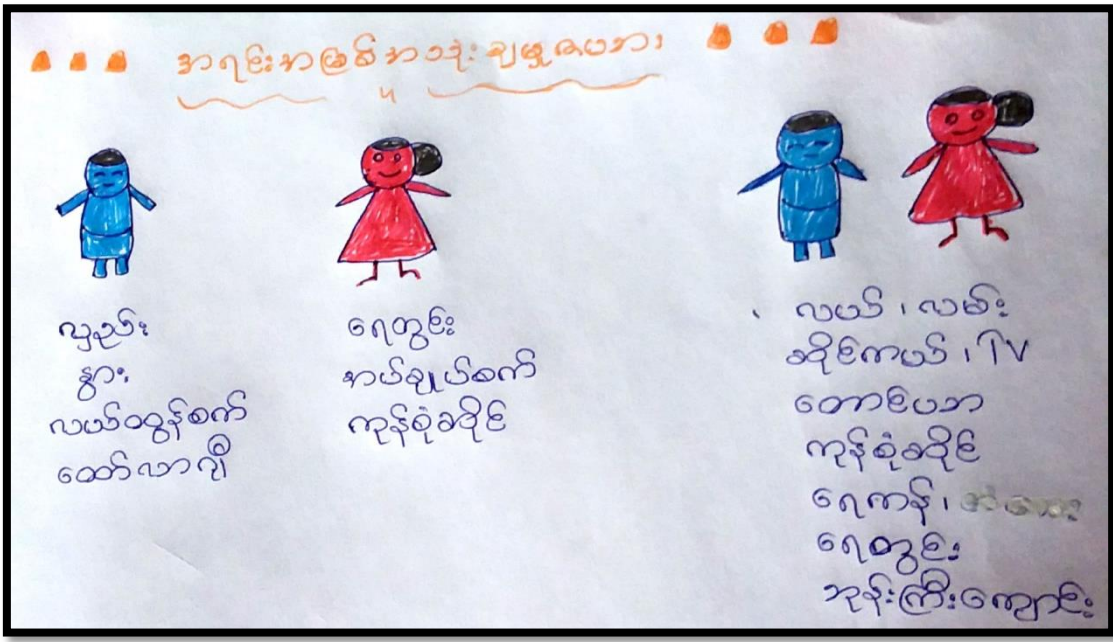 အရင်းအမြစ်အသုံးချမှုဇယား
လှည်း
နွား
လယ်ထွန်စက်
ထော်လာဂျီ
ရေတွင်း
အပ်ချုပ်စက်
ကုန်စုံဆိုင်
လယ်၊ လမ်း
ဆိုင်ကယ်၊ TV
တောင်ယာ
ကုန်စုံဆိုင်
ရေကန်၊
ရေတွင်း
ဘုန်းကြီးကျောင်း